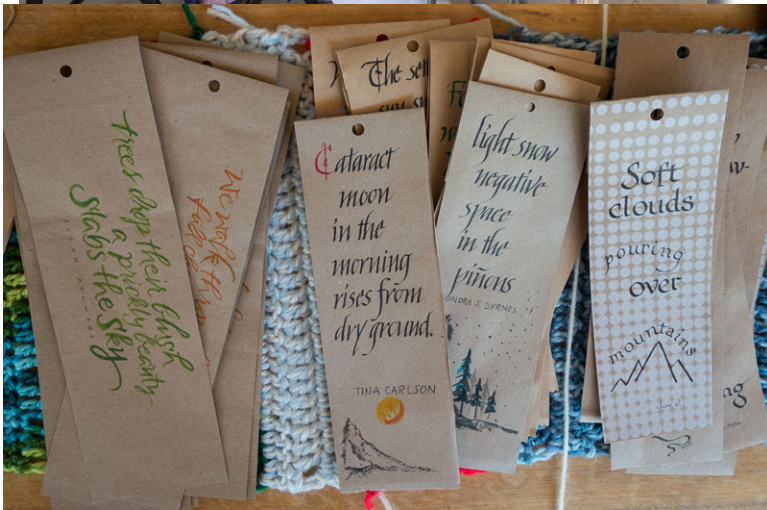 trees drop their blush
a prickly beauty
Stabs the sky
We walk
The
Cataract
moon
in the
morning
rises from
dry ground.
TINA CARLSON
light snow
negative
space
in the
piñons
BYRNES
Soft
clouds
pouring
over
mountains